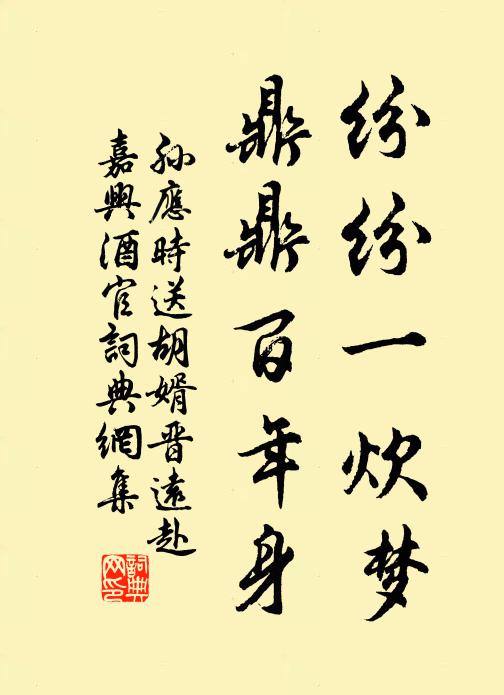 纷纷一炊梦
鼎鼎百年身
孙應時送胡婿晋遠赴
嘉興酒官詞典網集
詞典网印